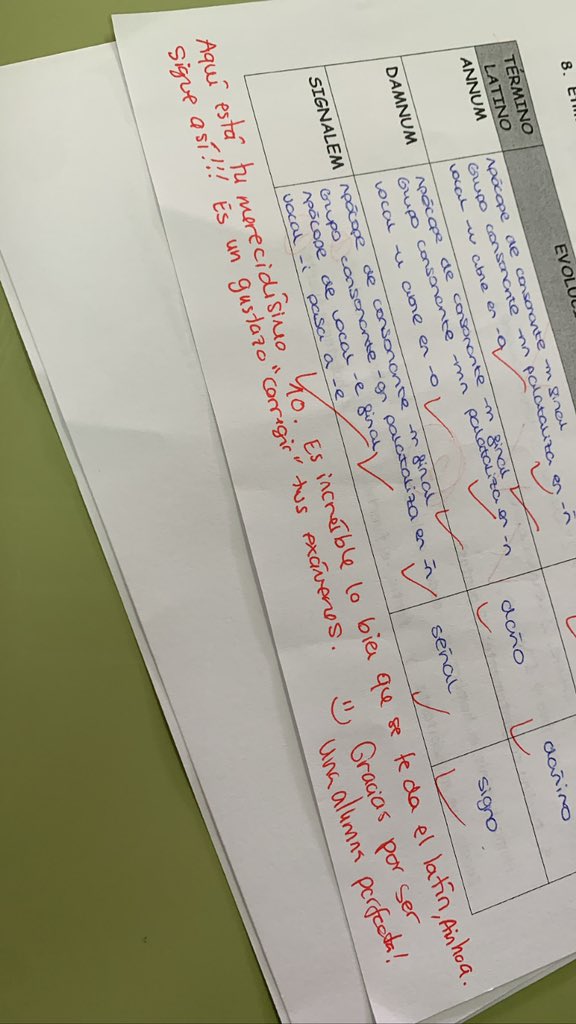 8. Eti
TÉRMINO LATINO
EVOLUC
ANNUM
Apócope de consonante -m final
Grupo consonante -nn palataliza en -ñ
vocal -u abre en -o
DAMNUM
Apócope de consonante -m final
Grupo consonante -mn palataliza en -ñ
vocal -u abre en -o
daño
dañino
SIGNALEM
Apócope de consonante -m final
Grupo consonante -gn palataliza en -ñ
Apócope de vocal -e final
vocal -i pasa a -e
señal
signo.
Aquí está tu merecidísimo 10. Es increíble lo bien que se te da el latín, Ainhoa.
Sigue así!!! Es un gustazo "corregir" tus exámenes. :) Gracias por ser
una alumna perfecta!